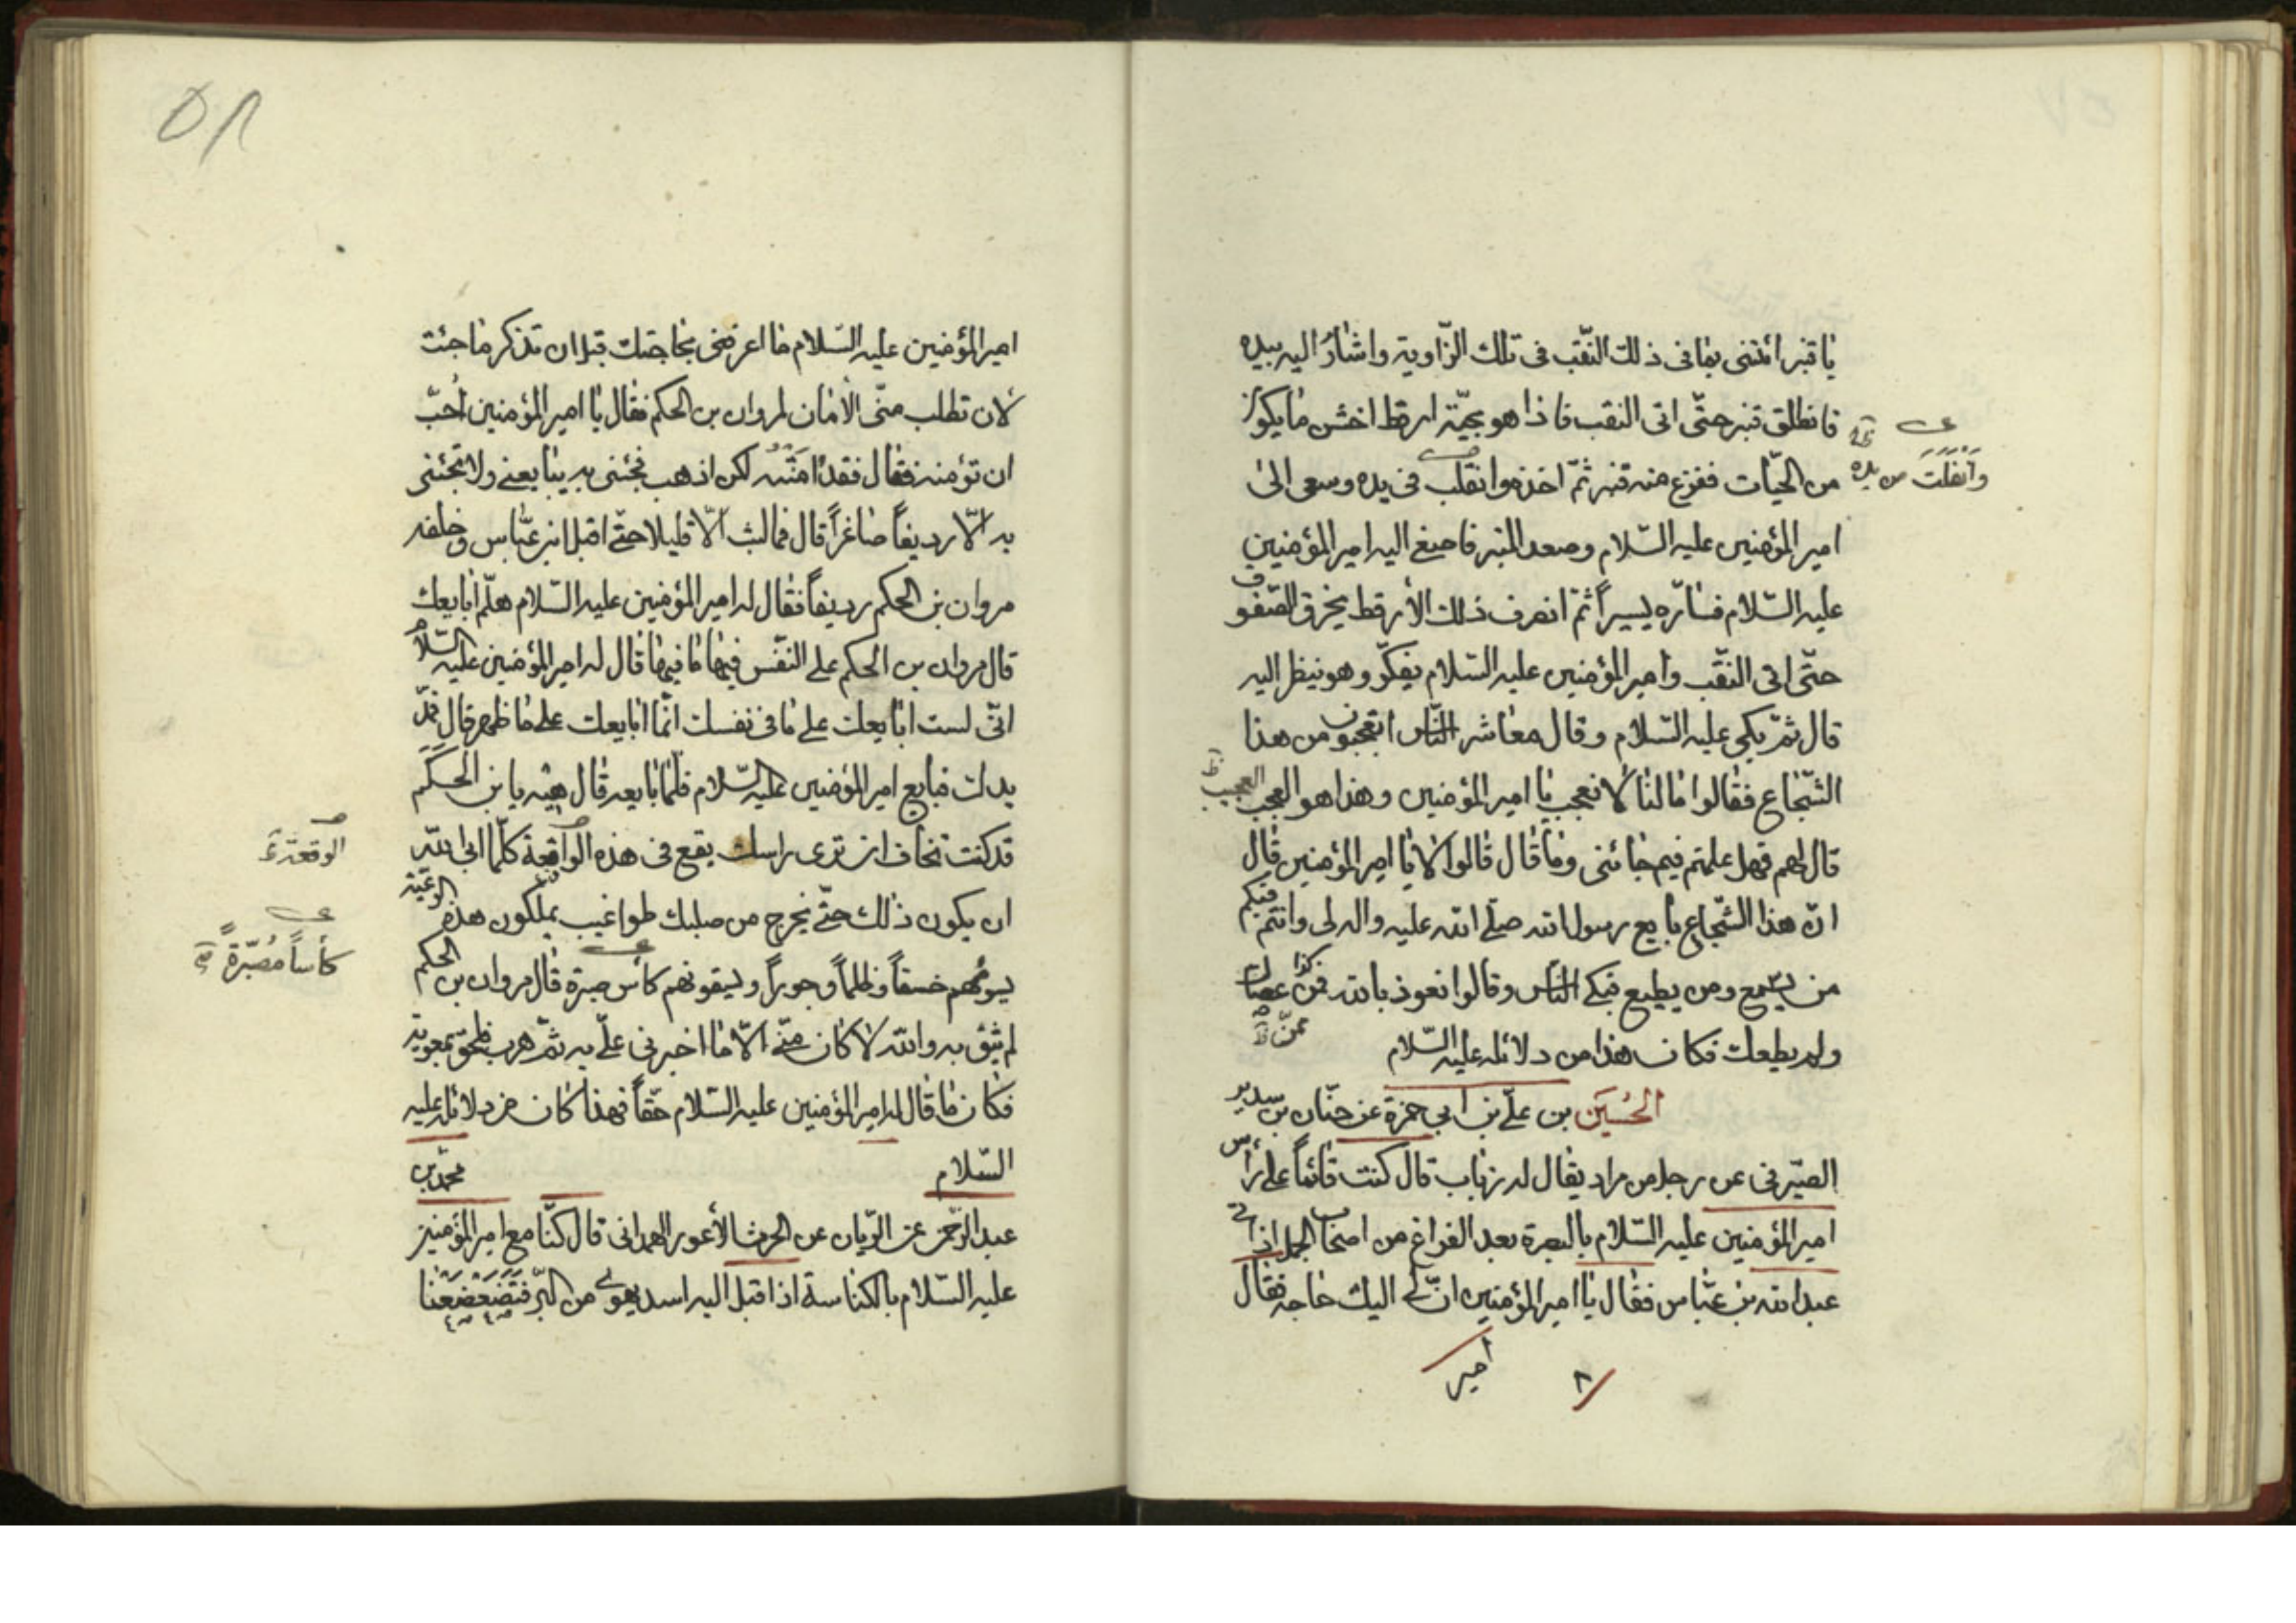 يا قنبر ائتنى بما فى ذلك النّقب فى تلك الزّاوية واشار اليه بيده
فانطلق قنبر حتّى اتى النقب فاذا هو بحيّة ارقط اخشن ما يكون
من الحيّات ففزع منه قنبر ثمّ اخذه وانقلب فى يده وسعى الى
وانفلت من يده
امير المؤمنين عليه السّلام وصعد المنبر فاصغى اليه امير المؤمنين
عليه السّلام فسارّه يسيراً ثمّ انصرف ذلك الأرقط يخرق الصّفوف
حتّى اتى النّقب وامير المؤمنين عليه السّلام يفكّر وهو ينظر اليه
قال ثمّ بكى عليه السّلام وقال معاشر النّاس اتعجبون من هذا
الشّجاع فقالوا ما لنا لا نعجب يا امير المؤمنين وهذا هو العجب
العجيب
قال لهم فهل علمتم فيم جائنى وما قال قالوا لا يا امير المؤمنين قال
انّ هذا الشّجاع بايع رسول الله صلّى الله عليه واله لى وانتم فيكم
من يسمع ومن يطيع فبكى النّاس وقالوا نعوذ بالله فمن عصاك
كذا
ممّن
ولم يطعك فكان هذا من دلائله عليه السّلام
الحُسَين بن علىّ بن ابى حمزة عن حنّان بن سدير
الصيّرفى عن رجل من مراد يقال له رباب قال كنت قائماً على رأس
امير المؤمنين عليه السّلام بالبصرة بعد الفراغ من اصحاب الجمل اذ اتى
عبد الله بن عبّاس فقال يا امير المؤمنين انّ لى اليك حاجه فقال
امير
٨
٥٨
امير المؤمنين عليه السّلام ما اعرفنى بحاجتك قبل ان تذكر ما جئت
لان تطلب منّى الأمان لمروان بن الحكم فقال يا امير المؤمنين اُحبّ
ان تؤمنه فقال فقد امَنْتُه لكن اذهب فجئنى به يبايعنى ولا تجئنى
به الّا رديفاً صاغراً قال فما لبث الّا قليلا حتّى اقبل ابن عبّاس وخلفه
مروان بن الحكم رديفاً فقال له امير المؤمنين عليه السّلام هلمّ ابايعك
قال مروان بن الحكم على النّفس فيها ما فيها قال له امير المؤمنين عليه السّلام
انّى لست ابايعك على ما فى نفسك انّما ابايعك على ما ظهر قال فمدّ
يدك فبايع امير المؤمنين عليه السّلام فلمّا بايعه قال هيه يا بن الحَكَم
قد كنت تخاف ان ترى راسك يقع فى هذه الواقعة كلّا ابى الله
الوقعة
ان يكون ذلك حتّى يخرج من صلبك طواغيت يملكون هذه الرعيّة
يسومُهم خسفاً وظلماً وجوراً ويسقونهم كأس صبرة قال مروان بن الحكم
كأساً مُصَبَّرةً
لم يثق به والله لا كان منّى الّا ما اخبرنى علىّ به ثمّ هرب فلحق بمعوية
فكان ما قال له امير المؤمنين عليه السّلام حقّاً فهذا كان من دلائله عليه
السّلام محمّد بن
عبد الرّحمن عن الرّيان عن الحرث الأعور الهمدانى قال كنّا مع امير المؤمنين
عليه السّلام بالكناسة اذ اقبل اليه اسد يهوى من البرّ فتَضَعْضَعْنا